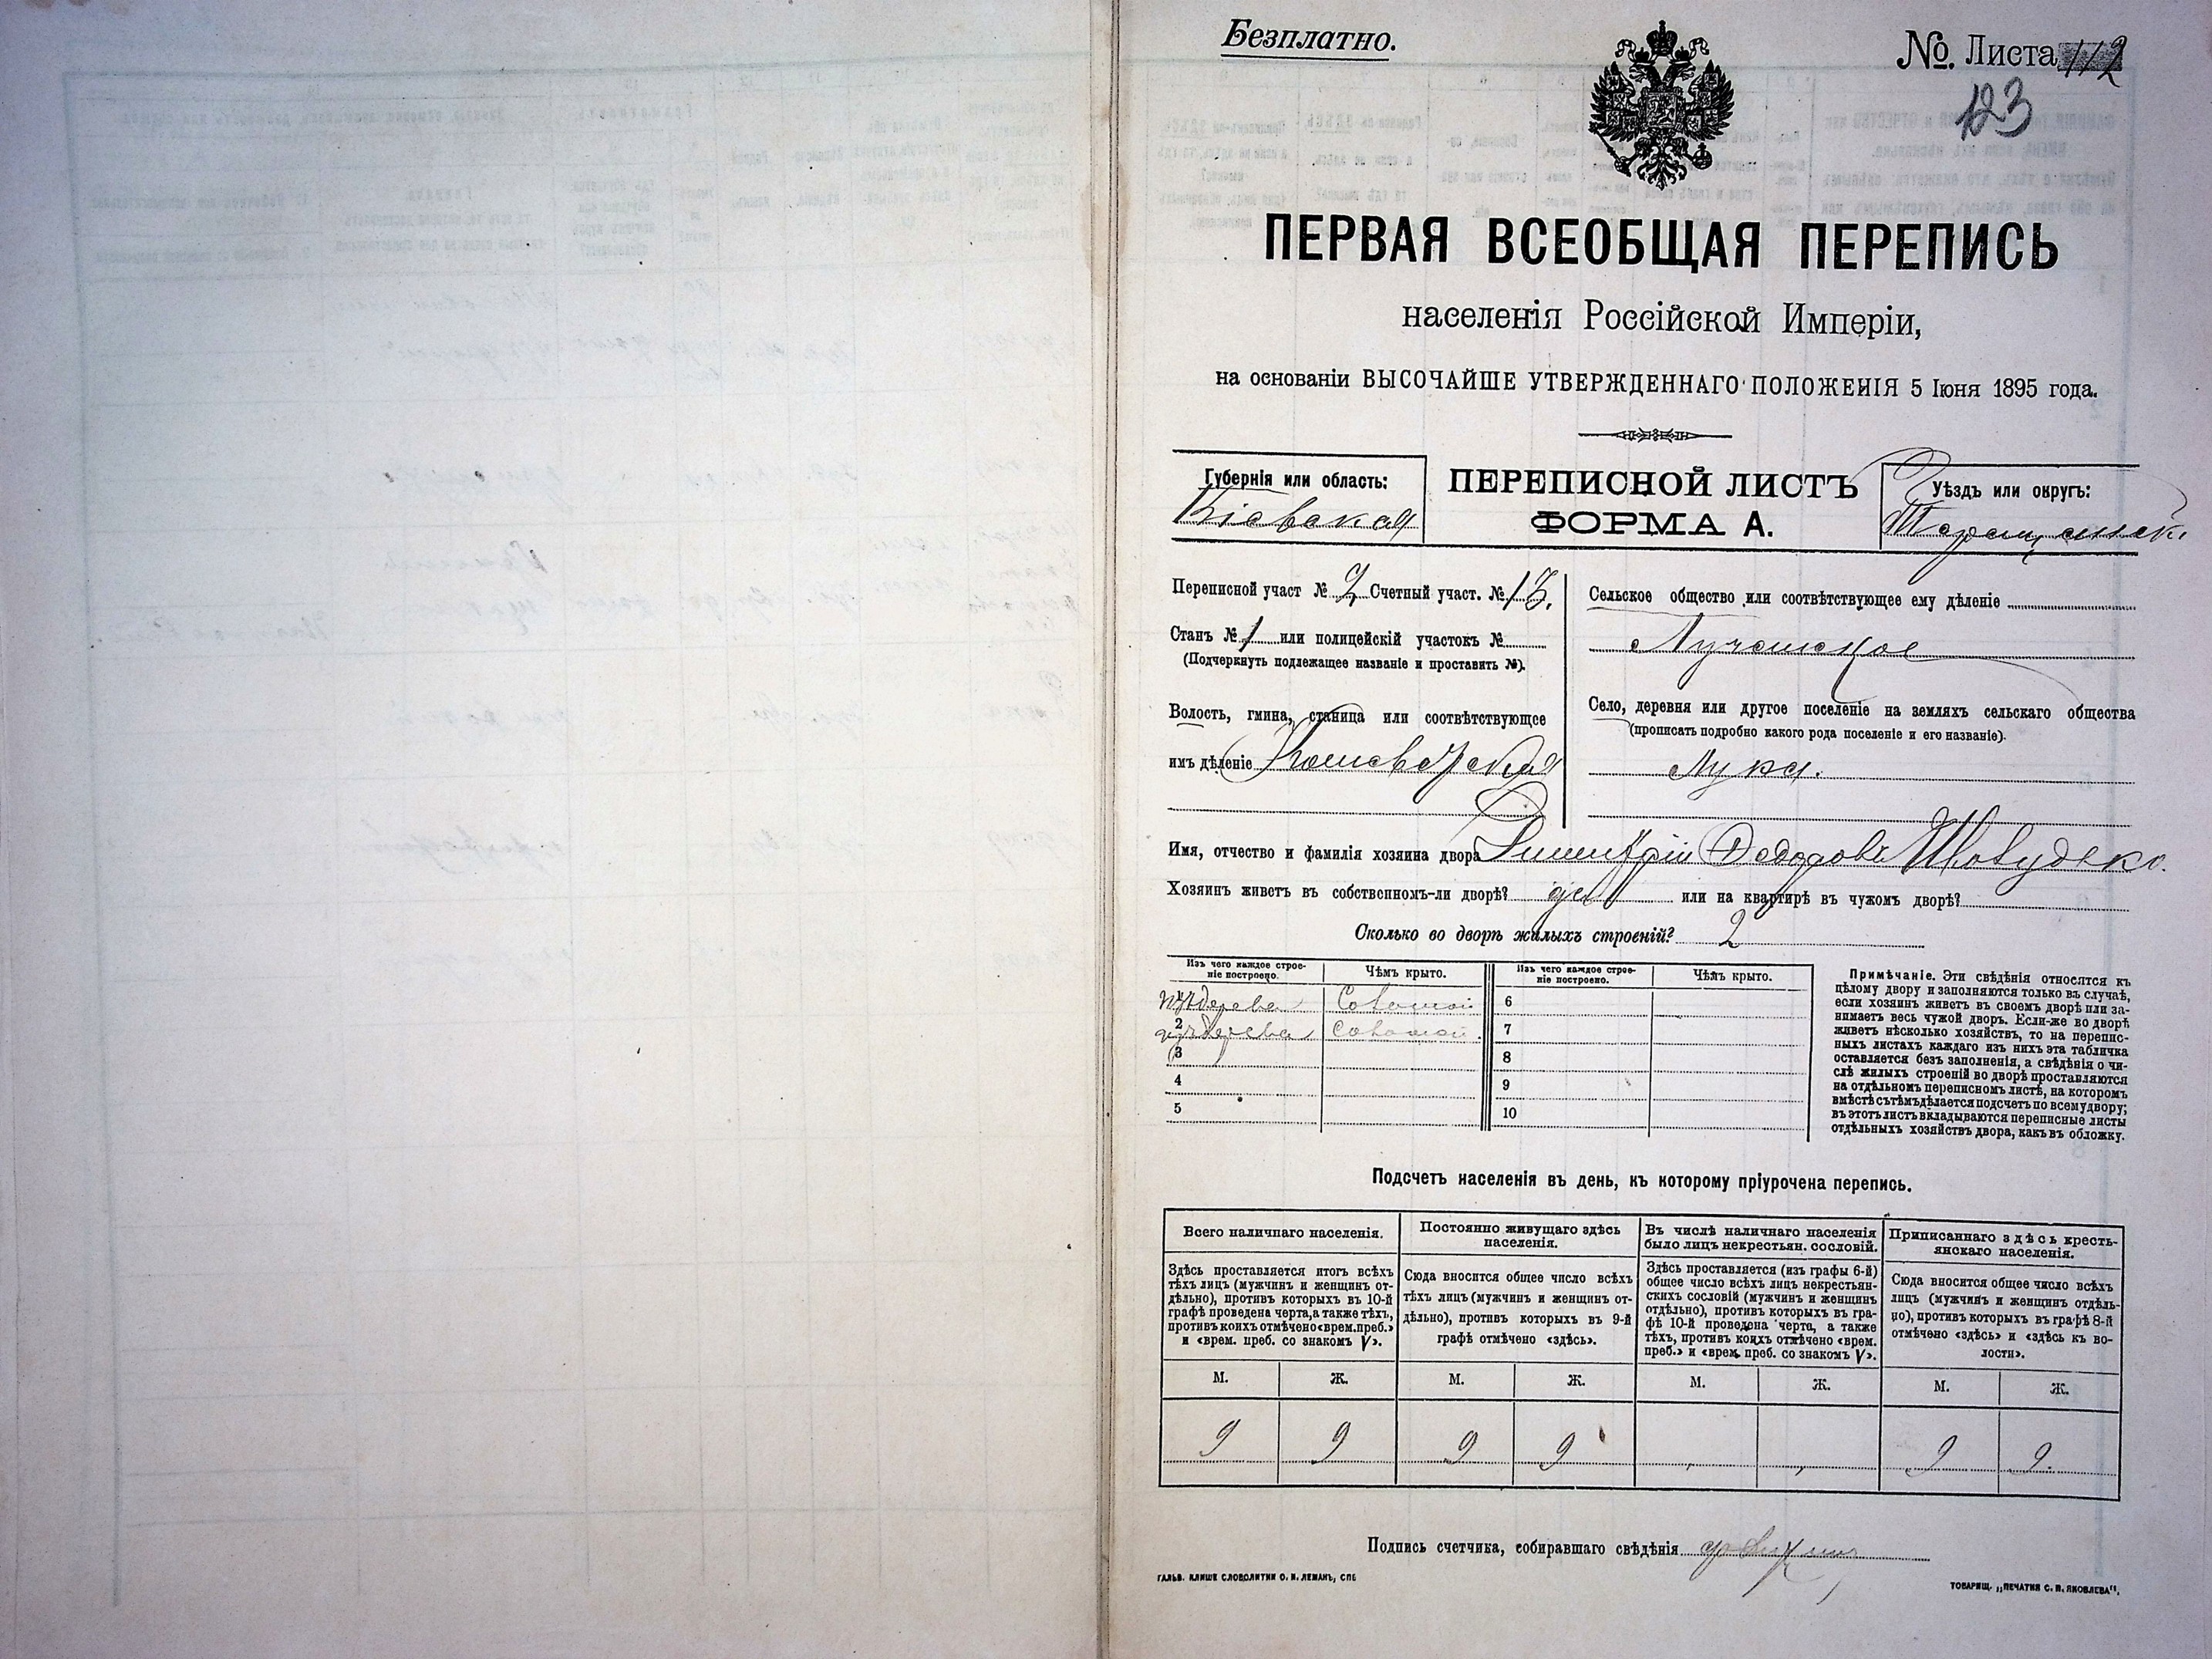 Безплатно.
№. Листа 112
123
ПЕРВАЯ ВСЕОБЩАЯ ПЕРЕПИСЬ
населенія Россійской Имперіи,
на основаніи ВЫСОЧАЙШЕ УТВЕРЖДЕННАГО ПОЛОЖЕНІЯ 5 Іюня 1895 года.
Губернія или область:
Кіевская
ПЕРЕПИСНОЙ ЛИСТЪ
ФОРМА А.
Уѣздъ или округъ:
Таращанскі
Переписной участ № 2 Счетный участ. № 13.
Станъ № 1 или полицейскій участокъ №
(Подчеркнуть подлежащее названіе и проставить №).
Волость, гмина, станица или соотвѣтствующее
имъ дѣленіе
Сельское общество или соотвѣтствующее ему дѣленіе
Лучанское
Село, деревня или другое поселеніе на земляхъ сельскаго общества
(прописать подробно какого рода поселеніе и его названіе).
Лука.
Имя, отчество и фамилія хозяина двора Димитрій Федоровъ
Хозяинъ живетъ въ собственномъ-ли дворѣ? да или на квартирѣ въ чужомъ дворѣ?
Сколько во дворѣ жилыхъ строеній? 2
Изъ чего каждое строе-
ніе построено.
Чѣмъ крыто.
Изъ чего каждое строе-
ніе построено.
Чѣмъ крыто.
1 изъ дерева Соломой 6
2 изъ дерева Соломой. 7
3 8
4 9
5 10
Примѣчаніе. Эти свѣдѣнія относятся къ
цѣлому двору и заполняются только въ случаѣ,
если хозяинъ живетъ въ своемъ дворѣ или за-
нимаетъ весь чужой дворъ. Если-же во дворѣ
живетъ нѣсколько хозяйствъ, то на перепис-
ныхъ листахъ каждаго изъ нихъ эта табличка
оставляется безъ заполненія, а свѣдѣнія о чи-
слѣ жилыхъ строеній во дворѣ проставляются
на отдѣльномъ переписномъ листѣ, на которомъ
вмѣстѣ съ тѣмъ дѣлается подсчетъ по всему двору;
въ этотъ листъ вкладываются переписные листы
отдѣльныхъ хозяйствъ двора, какъ въ обложку.
Подсчетъ населенія въ день, къ которому пріурочена перепись.
Всего наличнаго населенія.
Здѣсь проставляется итогъ всѣхъ
тѣхъ лицъ (мужчинъ и женщинъ от-
дѣльно), противъ которыхъ въ 10-й
графѣ проведена черта, а также тѣхъ,
противъ коихъ отмѣчено «врем. преб.»
и «врем. преб. со знакомъ V».
Постоянно живущаго здѣсь
населенія.
Сюда вносится общее число всѣхъ
тѣхъ лицъ (мужчинъ и женщинъ от-
дѣльно), противъ которыхъ въ 9-й
графѣ отмѣчено «здѣсь».
Въ числѣ наличнаго населенія
было лицъ некрестьян. сословій.
Здѣсь проставляется (изъ графы 6-й)
общее число всѣхъ лицъ некрестьян-
скихъ сословій (мужчинъ и женщинъ
отдѣльно), противъ которыхъ въ гра-
фѣ 10-й проведена черта, а также
тѣхъ, противъ коихъ отмѣчено «врем.
преб.» и «врем. преб. со знакомъ V».
Приписаннаго здѣсь кресть-
янскаго населенія.
Сюда вносится общее число всѣхъ
лицъ (мужчинъ и женщинъ отдѣль-
но), противъ которыхъ въ графѣ 8-й
отмѣчено «здѣсь» и «здѣсь къ во-
лости».
М. Ж. М. Ж. М. Ж. М. Ж.
9 9 9 9 9 9.
Подпись счетчика, собиравшаго свѣдѣнія
ГАЛЬВ. КЛИШЕ СЛОВОЛИТНИ О. И. ЛЕМАНЪ, СПБ
ТОВАРИЩ. „ПЕЧАТНЯ С. П. ЯКОВЛЕВА“.